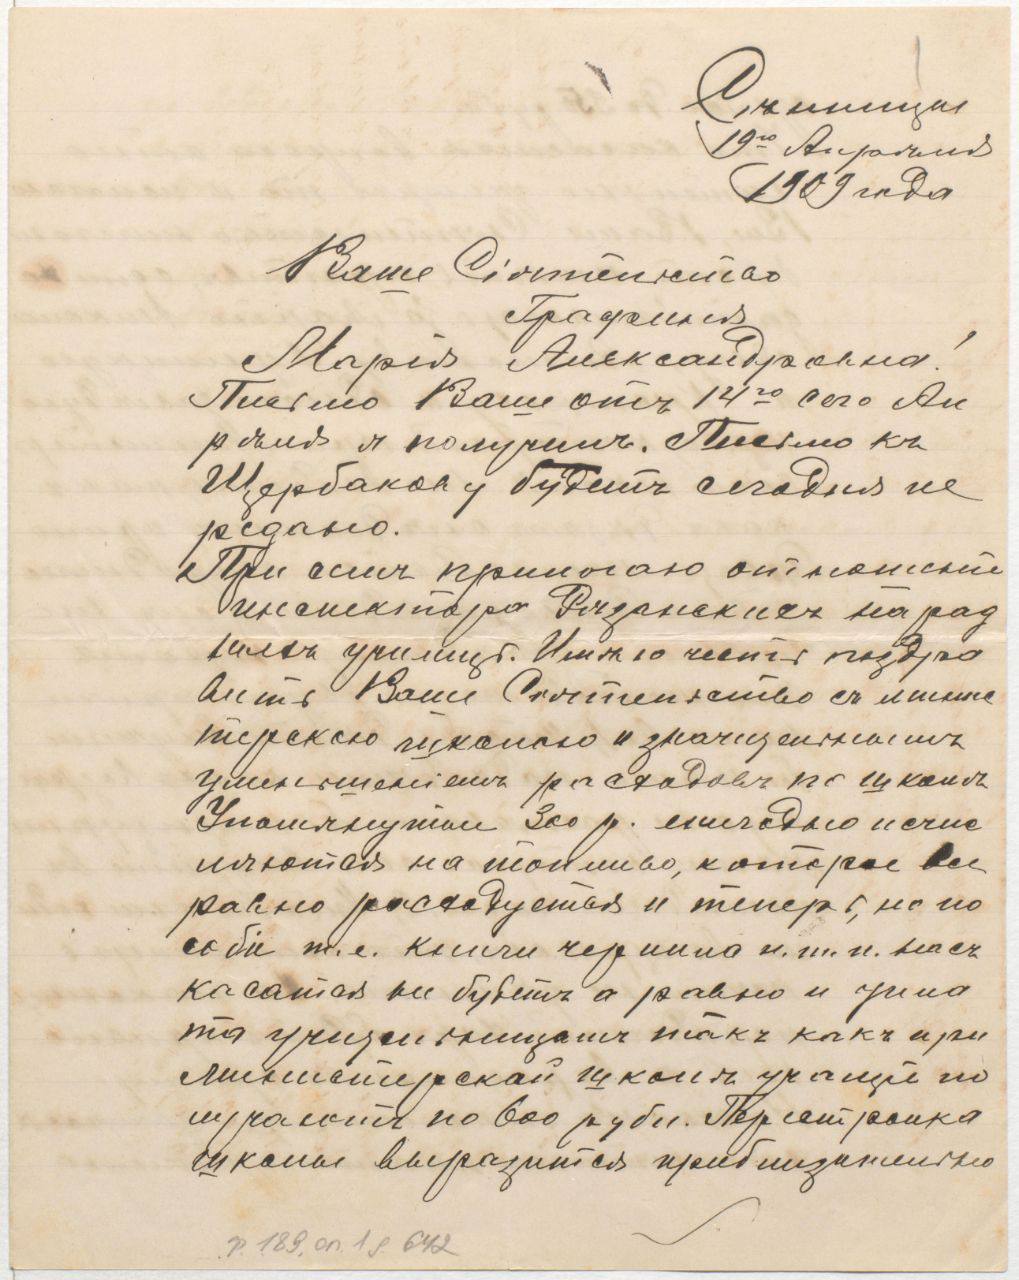 Сѣнницы
19го Апрѣля
1909 года
Ваше Сіятельство
Графиня
Марія Александровна!
Письмо Ваше отъ 14го сего Ап
рѣля я получилъ. Письмо къ
Щербакову будетъ сегодня пе
редано.
При семъ прилогаю отношеніе
инспектора Рязанскихъ народ
ныхъ училищъ. Имѣю честь поздра
вить Ваше Сіятельство съ минис
терскою школою и значительнымъ
уменьшеніемъ расходовъ по школѣ
Упомянутыи 300 р. ежегодно исчис
ляются на топливо, которое все
равно расходуется и теперь, но по
собія т.е. книги чернила и.т.п. насъ
касатся не будетъ а равно и упла
та учительницамъ такъ какъ при
Министерской школѣ учащіе по
лучаютъ по 600 рубл. Перестройка
школы выразится приблизительно
р. 189. оп. 1 д. 642